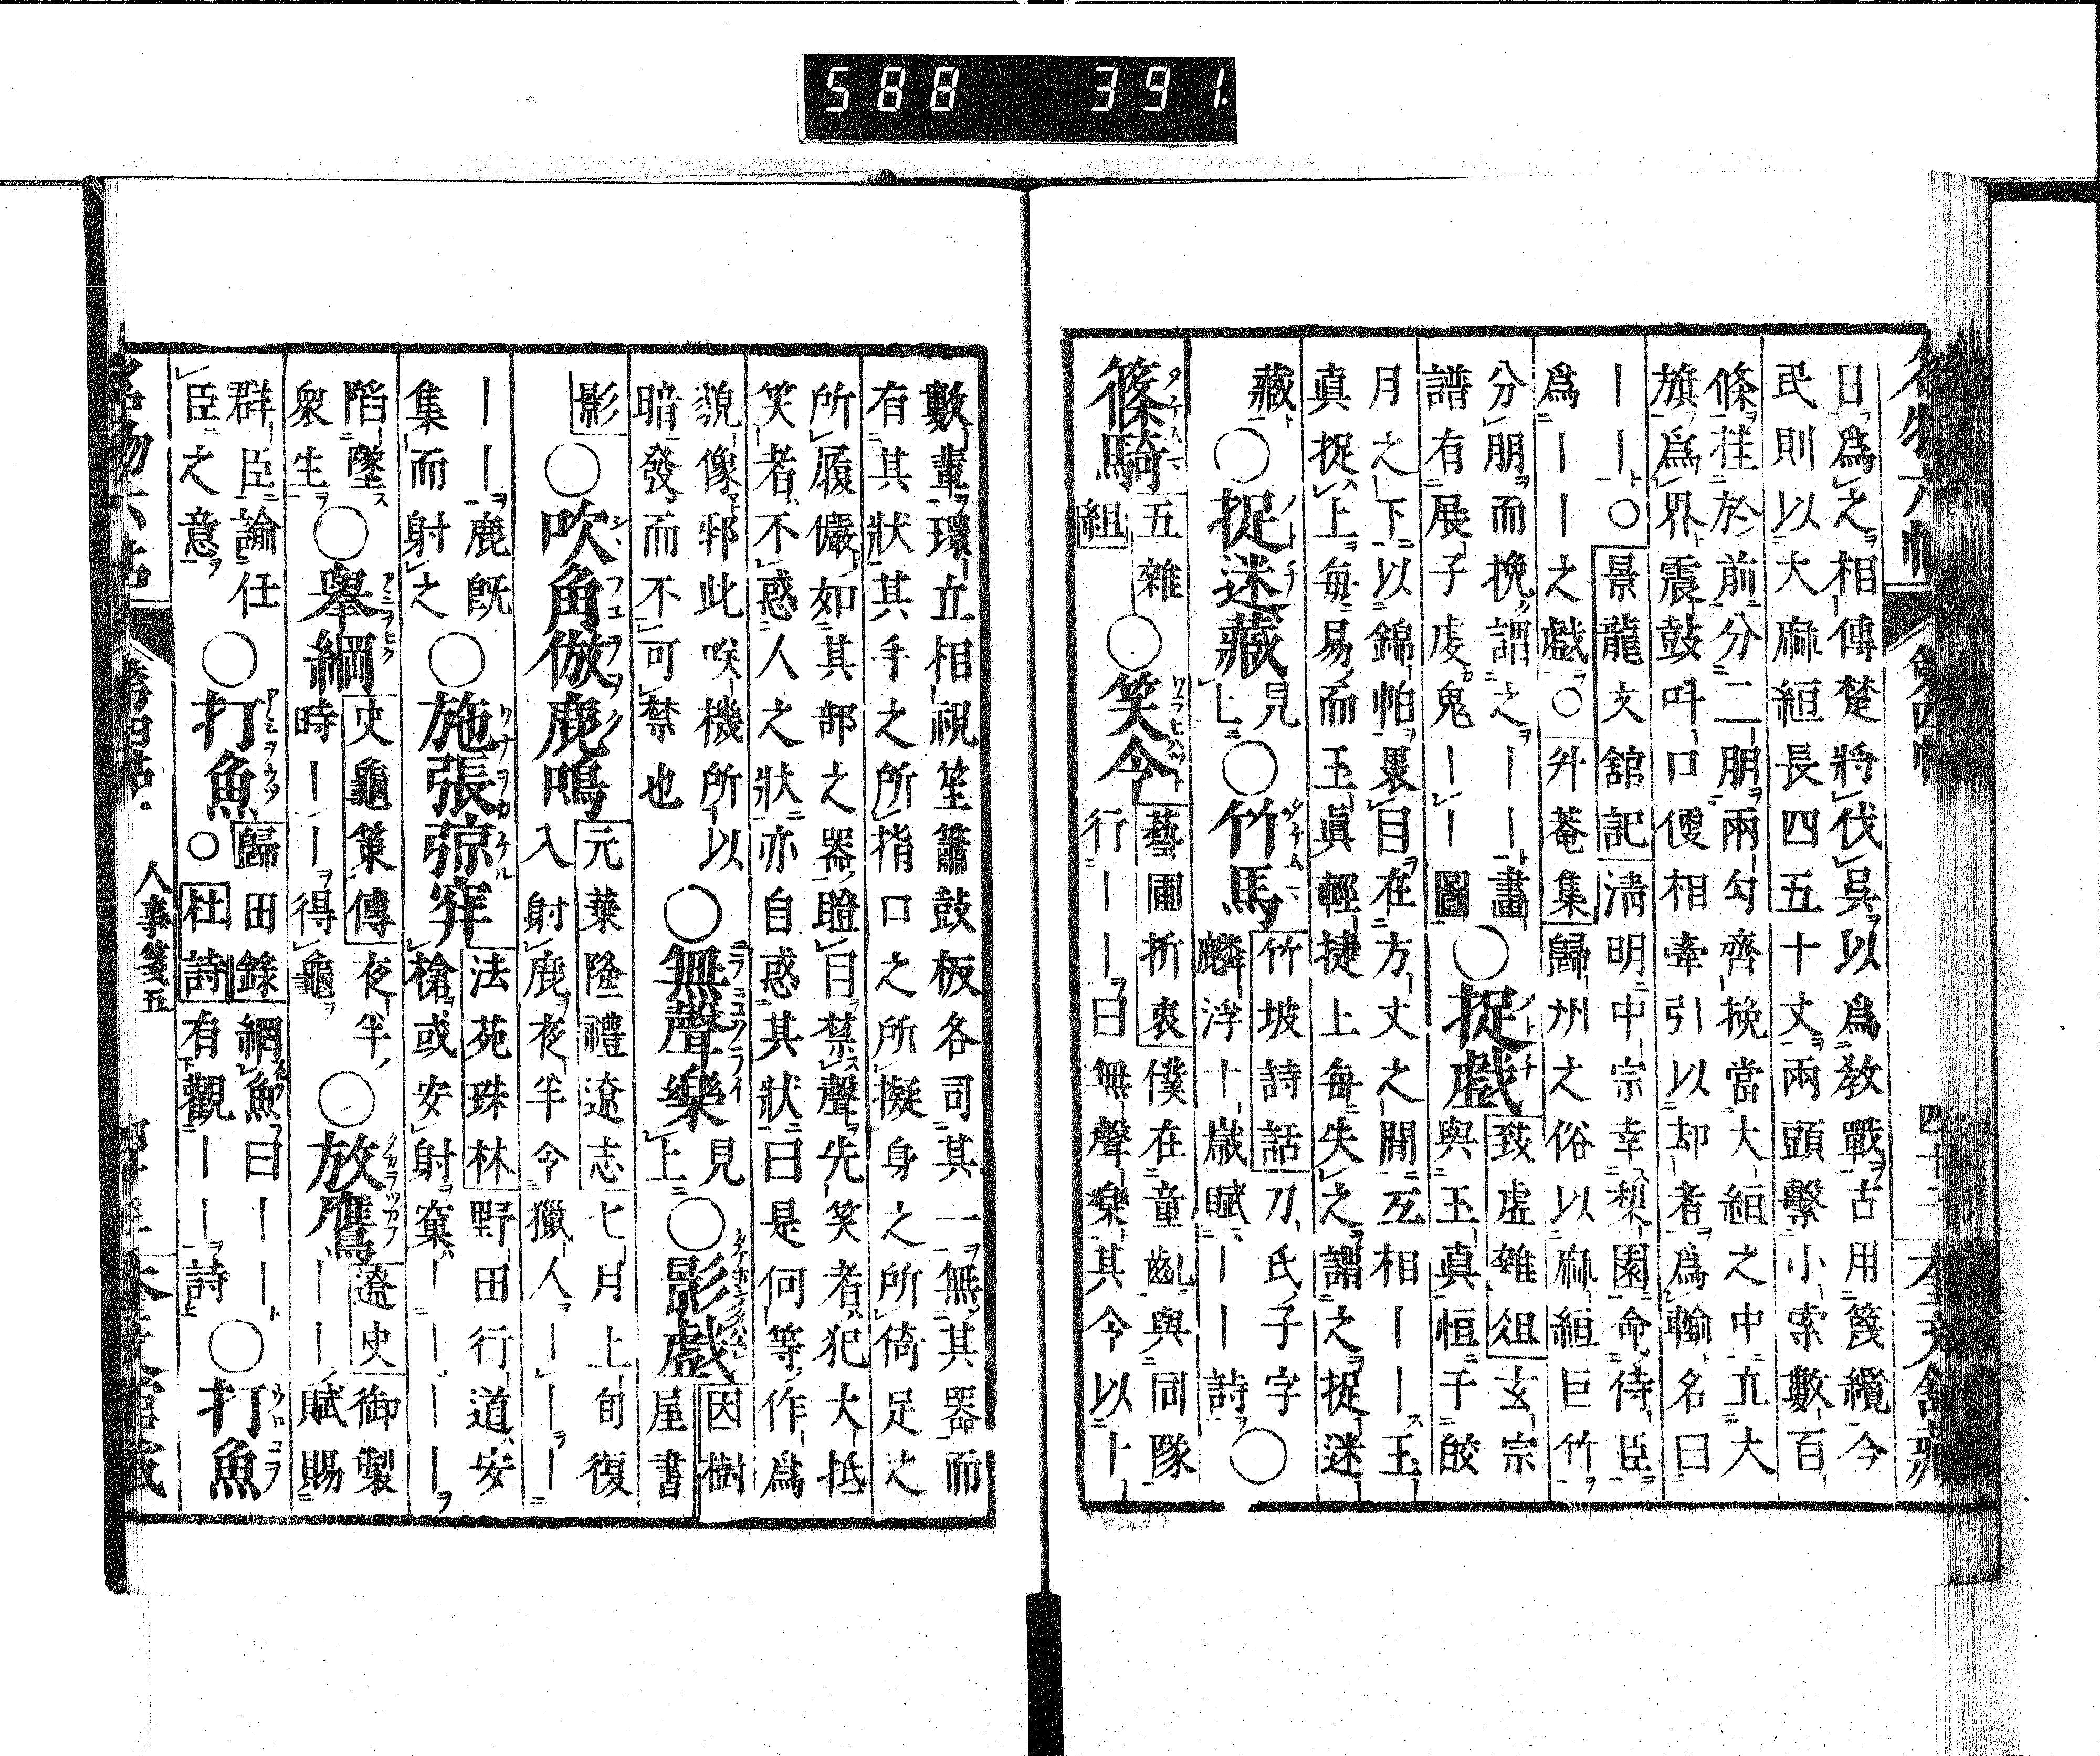 588 391
日爲之相傳楚將伐吳以爲敎戰古用篾纜今
民則以大麻絙長四五十丈兩頭繫小索數百
條挂於前分二朋兩勾齊挽當大絙之中立大
旗爲界震鼓叫口僾相牽引以却者爲輸名曰
——○景龍文舘記淸明中宗幸梨園命侍臣
爲———之戯○升菴集歸州之俗以麻絙巨竹
分朋而挽謂之——畫
譜有展子虔鬼——圖
○捉戯
致虛雜俎玄宗
與玉真恒于皎
月之下以錦帕裹目在方丈之間互相——玉
真捉上每易而玉眞輕捷上每失之謂之捉迷
藏
○捉迷藏
見上
○竹馬
竹坡詩話刀氏子字
麟浮十歲賦——詩
○篠騎
五雜
組
○笑令
藝圃折衷僕在童齓與同隊
行——曰無聲樂其令以十
數輩環立相視笙簫鼓板各司其一無其器而
有其狀其手之所指口之所擬身之所倚足之
所履儼如其部之器瞪目禁聲先笑者犯大抵
笑者不惑人之狀亦自惑其狀曰是何等作爲
貌像邪此咲機所以
暗發而不可禁也
○無聲樂
見上
○影戲
因樹
屋書
影
○吹角倣鹿鳴
元葉隆禮遼志七月上旬復
入射鹿夜半令獵人————
——鹿旣
集而射之
○施張弶穽
法苑珠林野田行道安
槍或安射窠————
陷墜
衆生
○舉網
史龜策傳夜半
時——得龜
○放鷹
遼史御製
———賦賜
群臣諭任
臣之意
○打魚
歸田錄網魚曰——
○杜詩有觀——詩
○打魚
人事箋五